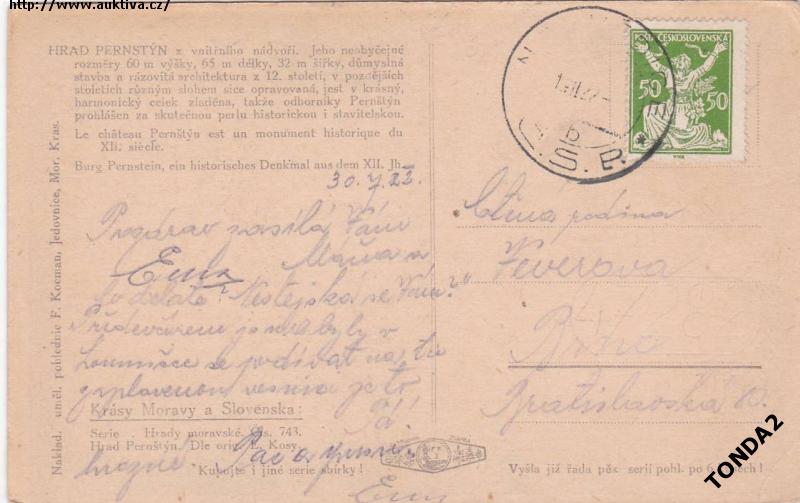 http://www.auktiva.cz/
HRAD PERNSTÝN z vnitřního nádvoří. Jeho neobyčejné
rozměry 60 m výšky, 65 m délky, 32 m šířky, důmyslná
stavba a rázovitá architektura z 12. století, v pozdějších
stoletích různým slohem sice opravovaná, jest v krásný,
harmonický celek zladěna, takže odborníky Pernštýn
prohlášen za skutečnou perlu historickou i stavitelskou.
Le château Pernštýn est un monument historique du
XII. siècle.
Burg Pernstein, ein historisches Denkmal aus dem XII. Jh.
30. 22.
Pozdrav zasílá Vám
Máňa a
Ema
co děláte? Nestejská se Vám?
Předevčírem jsme byly v
se podívat na tu
zaplavenou
Krásy Moravy a Slovenska:
Serie . Hrady moravské. Čís. 743.
Hrad Pernštýn. Dle orig. E. Kosy.
hrozné.
Kupujte i jiné serie sbírky!
Ema
Naklad. uměl. pohlednic F. Kocman, Jedovnice, Mor. Kras.
POŠTA ČESKOSLOVENSKÁ
50 50
b
Č.S.P.
Ctěná rodina
Veverova
Brno
Bratislavská
Vyšla již řada pův. serií pohl. po 6 kusech!
TONDA2